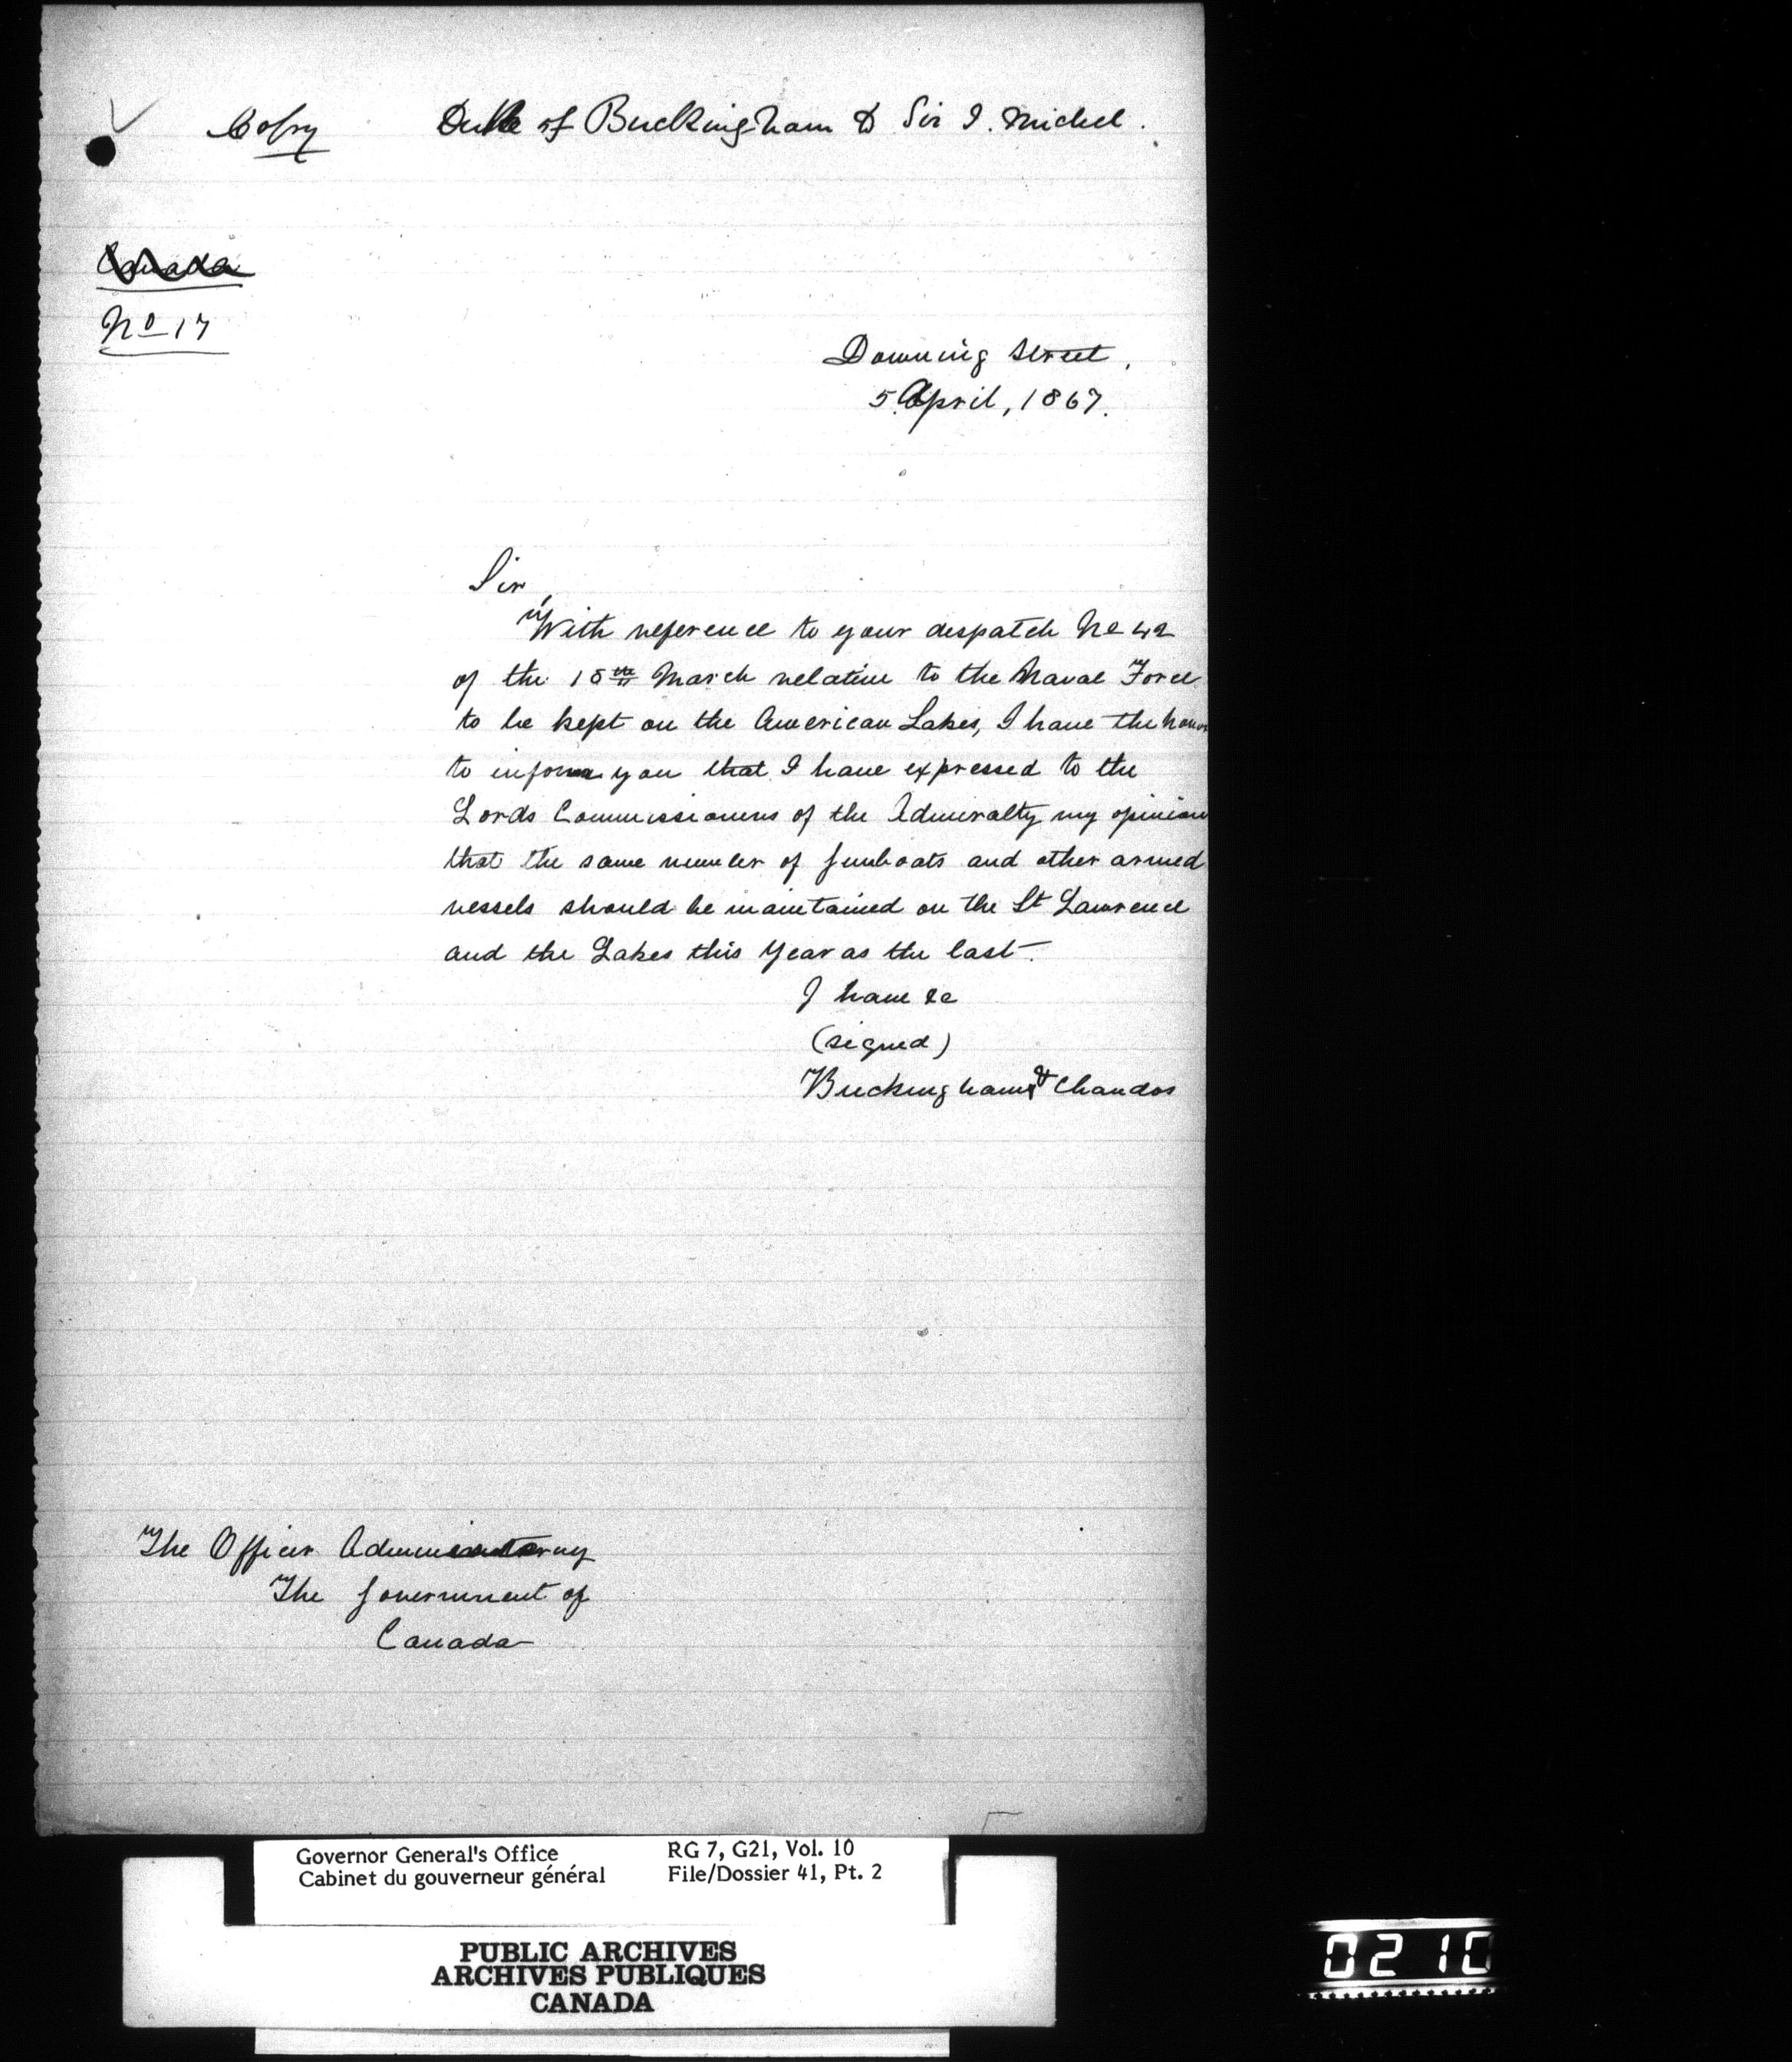 Copy Duke of Buckingham to Sir J. Michel.
Canada
No 17
Downing Street,
5 April, 1867.
Sir,
With reference to your despatch No 42
of the 15th March relative to the Naval Force
to be kept on the American Lakes, I have the honor
to inform you that I have expressed to the
Lords Commissioners of the Admiralty my opinion
that the same number of Gunboats and other armed
vessels should be maintained on the St Lawrence
and the Lakes this Year as the last.
I have &c
(signed)
Buckingham & Chandos
The Officer Administering
The Government of
Canada
Governor General's Office RG 7, G21, Vol. 10
Cabinet du gouverneur général File/Dossier 41, Pt. 2
PUBLIC ARCHIVES
ARCHIVES PUBLIQUES
CANADA
0210